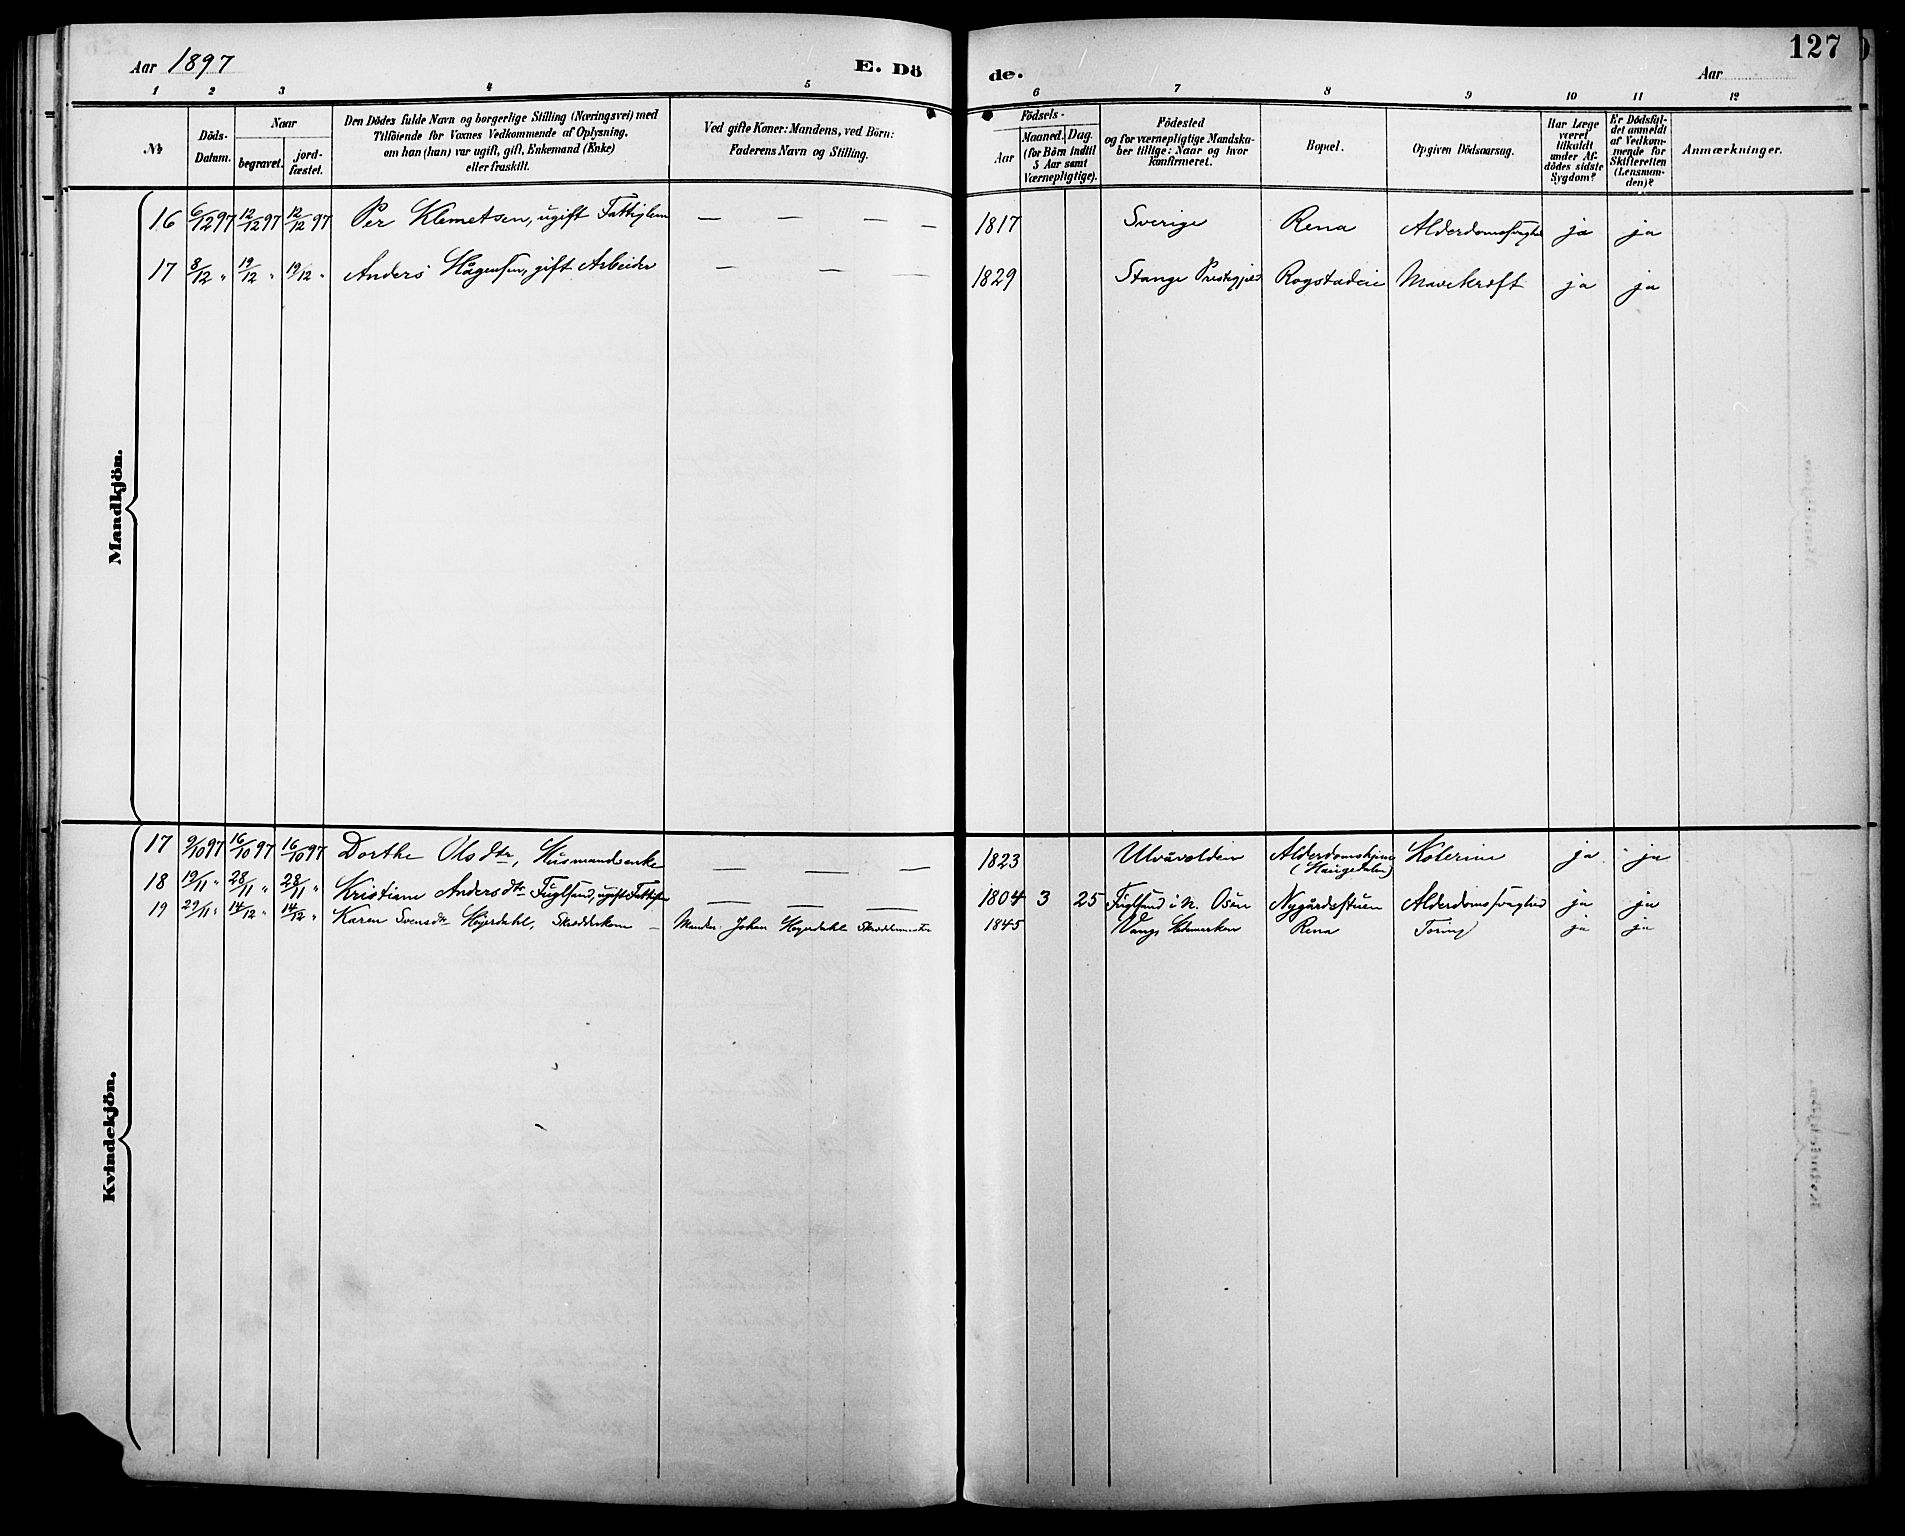 Aar 1897
E. Dö
de.
127
Aar
1 2 3 4 5 6 7 8 9 10 11 12
№
Döds-
Datum.
Naar
begravet.
jord-
fæstet.
Den Dödes fulde Navn og borgerlige Stilling (Næringsvei) med
Tilföiende for Voxnes Vedkommende af Oplysning,
om han (hun) var ugift, gift, Enkemand (Enke)
eller fraskilt.
Ved gifte Koner: Mandens, ved Börn:
Faderens Navn og Stilling.
Födsels-
Aar
Maaned. Dag.
(for Börn indtil
5 Aar samt
Værnepligtige).
Födested
og for værnepligtige Mandska-
ber tillige: Naar og hvor
Konfirmeret.
Bopæl.
Opgiven Dödsaarsag.
Har Læge
været
tilkaldt
under Af-
dödes sidste
Sygdom?
Er Dödsfal-
det anmeldt
af Vedkom-
mende for
Skifteretten
(Lensman-
den)?
Anmærkninger.
Mandkjön.
16 6/12 97 12/12 97 12/12 97 Per Klemetsen, ugift Fattiglem — — — — 1817 Sverige Rena Alderdomssvaghed ja ja
17 8/12 " 19/12 " 19/12 " Anders Hågensen, gift Arbeider — — — 1829 Stange Prestegjæld Rogstadeie Mavekræft ja ja
Kvindekjön.
17 9/10 97 16/10 97 16/10 97 Dorthe Olsdtr, Husmandsenke — — — 1823 Ulvåvolden Alderdomshjem Kolerine ja ja
(Haugedalen)
18 19/11 " 28/11 " 28/11 " Kristiane Andersdtr Fuglsund, ugift Fattiglem — — — 1804 3 25 Fuglsund i N. Osen Nygårdsstuen Alderdomssvaghed ja ja
19 29/11 " 14/12 " 14/12 " Karen Svensdtr Høyerdahl, Skrædderkone — Manden: Johan Høyerdahl Skræddermester 1845 Vangs Hedmarken Rena Tæring ja ja